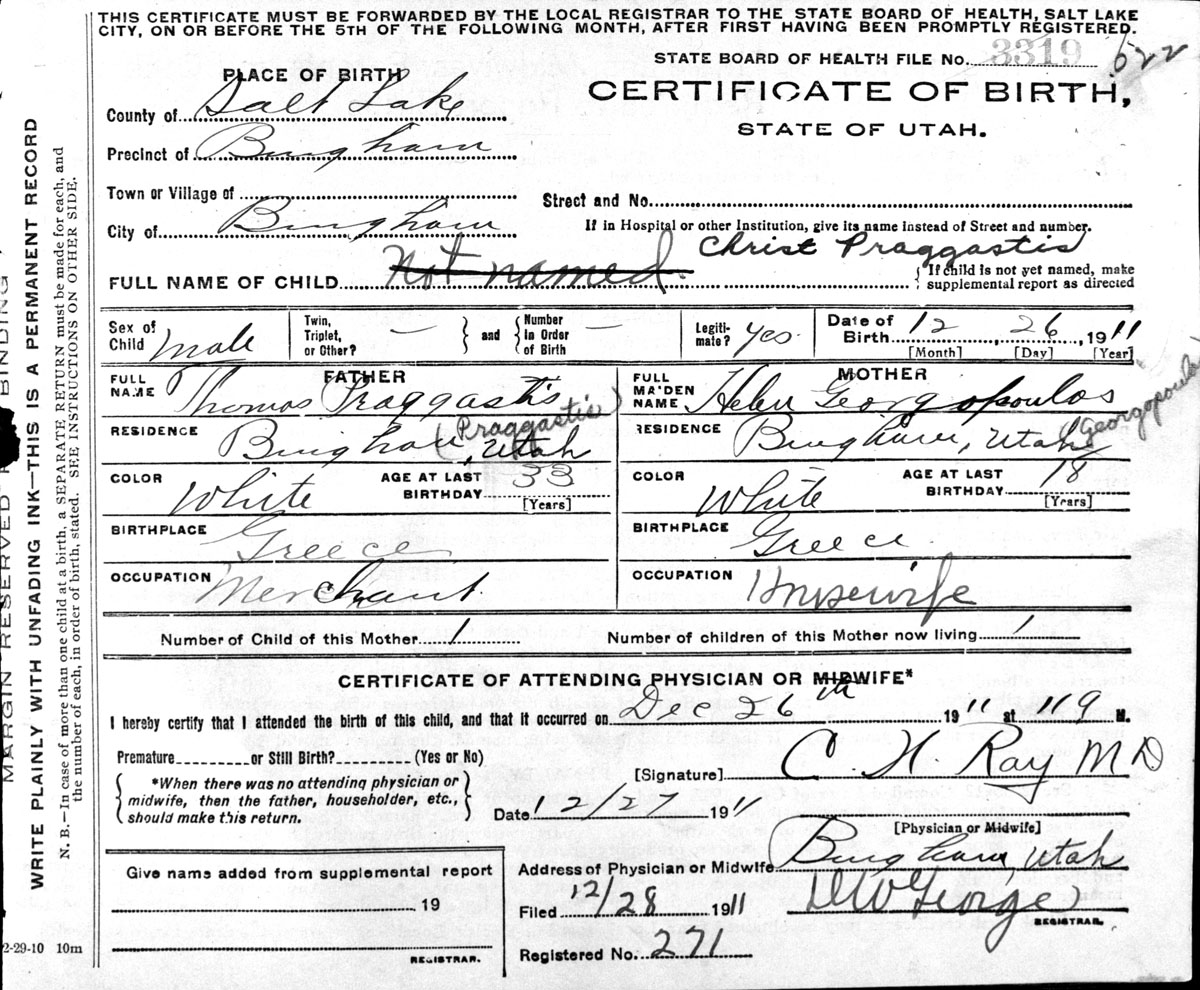 THIS CERTIFICATE MUST BE FORWARDED BY THE LOCAL REGISTRAR TO THE STATE BOARD OF HEALTH, SALT LAKE
CITY, ON OR BEFORE THE 5TH OF THE FOLLOWING MONTH, AFTER FIRST HAVING BEEN PROMPTLY REGISTERED.
STATE BOARD OF HEALTH FILE No. 3319 622
PLACE OF BIRTH
CERTIFICATE OF BIRTH,
STATE OF UTAH.
County of Salt Lake
Precinct of Bingham
Town or Village of
Street and No.
City of Bingham
If in Hospital or other Institution, give its name instead of Street and number.
Christ Praggastis
FULL NAME OF CHILD Not named.
If child is not yet named, make
supplemental report as directed
Sex of Child Male
Twin, Triplet, or Other? —
and
Number in Order of Birth —
Legiti-mate? Yes.
Date of Birth 12, 26, 1911
[Month] [Day] [Year]
FATHER
FULL NAME Thomas Praggastis
(Praggastis)
RESIDENCE Bingham, Utah
COLOR White
AGE AT LAST BIRTHDAY 33
[Years]
BIRTHPLACE Greece
OCCUPATION Merchant.
MOTHER
FULL MAIDEN NAME Helen Georgopoulos
(Georgopoulos
RESIDENCE Bingham, Utah
COLOR White
AGE AT LAST BIRTHDAY 18
[Years]
BIRTHPLACE Greece.
OCCUPATION Housewife
Number of Child of this Mother 1
Number of children of this Mother now living 1
CERTIFICATE OF ATTENDING PHYSICIAN OR MIDWIFE*
I hereby certify that I attended the birth of this child, and that it occurred on Dec 26th, 1911 at 119 M.
Premature or Still Birth? (Yes or No)
*When there was no attending physician or
midwife, then the father, householder, etc.,
should make this return.
[Signature] C. H. Ray MD
Date 12/27 1911
[Physician or Midwife]
Address of Physician or Midwife Bingham, Utah
Give name added from supplemental report
19
REGISTRAR.
Filed 12/28 1911
DW George
REGISTRAR.
Registered No. 271
2-29-10 10m
MARGIN RESERVED BINDING
WRITE PLAINLY WITH UNFADING INK—THIS IS A PERMANENT RECORD
N. B.—In case of more than one child at a birth, a SEPARATE RETURN must be made for each, and
the number of each, in order of birth, stated. SEE INSTRUCTIONS ON OTHER SIDE.